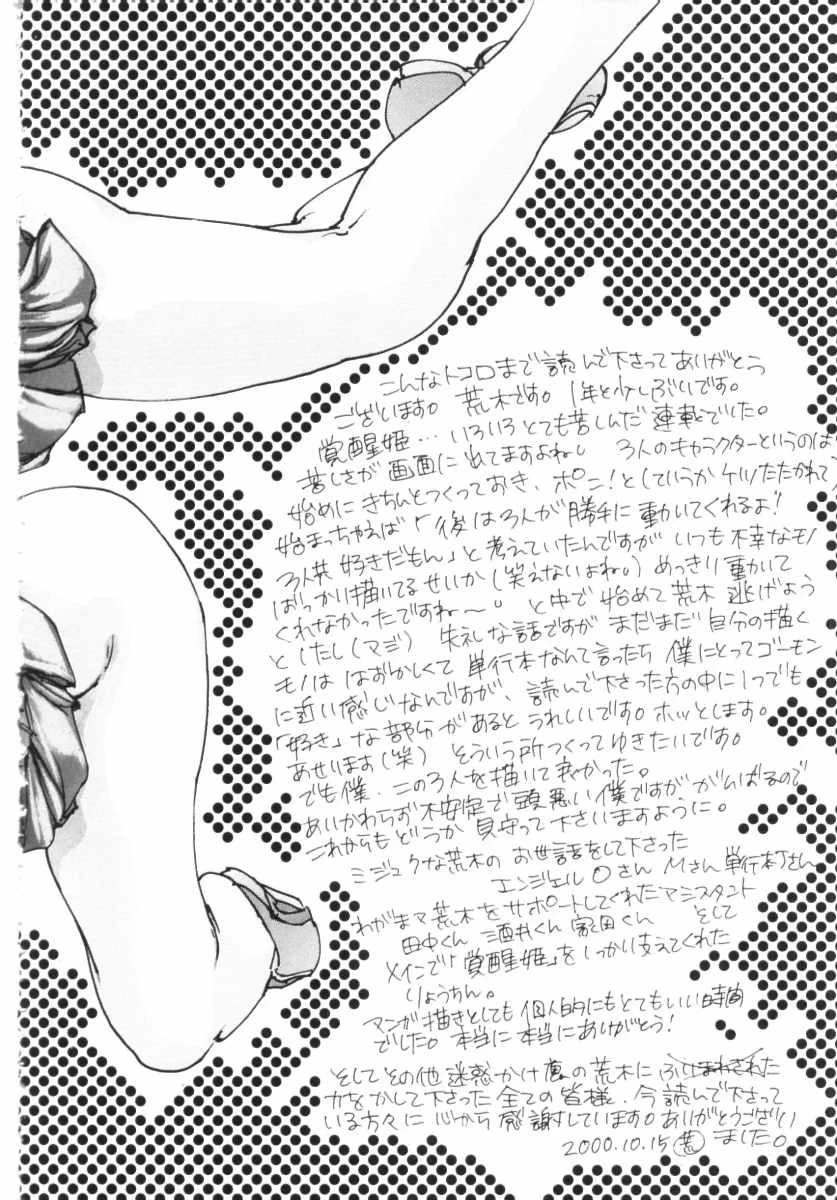 こんなトコロまで読んで下さってありがとう
ございます。荒木です。1年と少しぶりです。
覚醒姫…いろいろとても苦しんだ連載でした。
苦しさが画面に出てますよね。3人のキャラクターというのは
始めにきちんとつくっておき、ポン!と
始まっちゃえば「後は3人が勝手に動いてくれるよ!
3人共好きだもん」と考えていたんですがいつも不幸なモノ
ばっかり描いてるせいか(笑えないよね。)めっきり動いて
くれなかったですね〜。と中で始めて荒木逃げよう
としたし(マジ)失礼な話ですがまだまだ自分の描く
モノははずかしくて単行本なんて言ったら僕にとってゴーモン
に近い感じなんですが、読んで下さった方の中に1つでも
「好き」な部分があるとうれしいです。ホッとします。
あせります(笑)そういう所つくってゆきたいです。
でも僕、この3人を描いて良かった。
あいかわらず不安定で頭悪い僕ですががんばるので
これからもどうか見守って下さいますように。
ミジュクな荒木のお世話をして下さった
エンジェルOさん Mさん 単行本Jさん
わがまま荒木をサポートしてくれたアシスタント
田中くん 酒井くん くん そして
メインで「覚醒姫」をしっかり支えてくれた
りょうちん。
マンガ描きとしても個人的にもとてもいい時間
でした。本当に本当にありがとう!
そしてその他迷惑かけの荒木に
力をかして下さった全ての皆様、今読んで下さって
いる方々に心から感謝しています。ありがとうござい
ました。
2000.10.15 荒